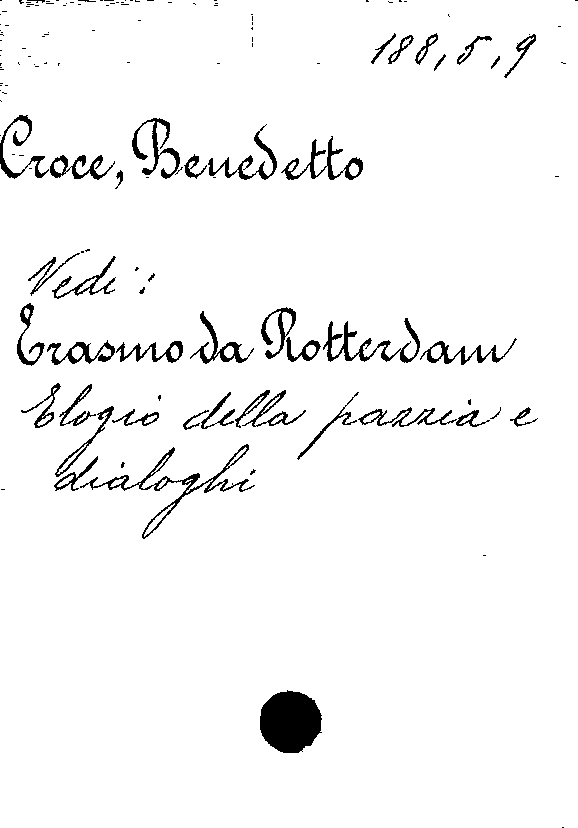 188,5,9
Croce, Benedetto
Vedi:
Erasmo da Rotterdam
Elogio della pazzia e
dialoghi